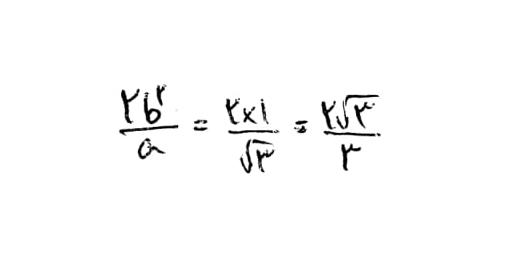 ۲b²/a = ۲×۱/√۳ = ۲√۳/۳